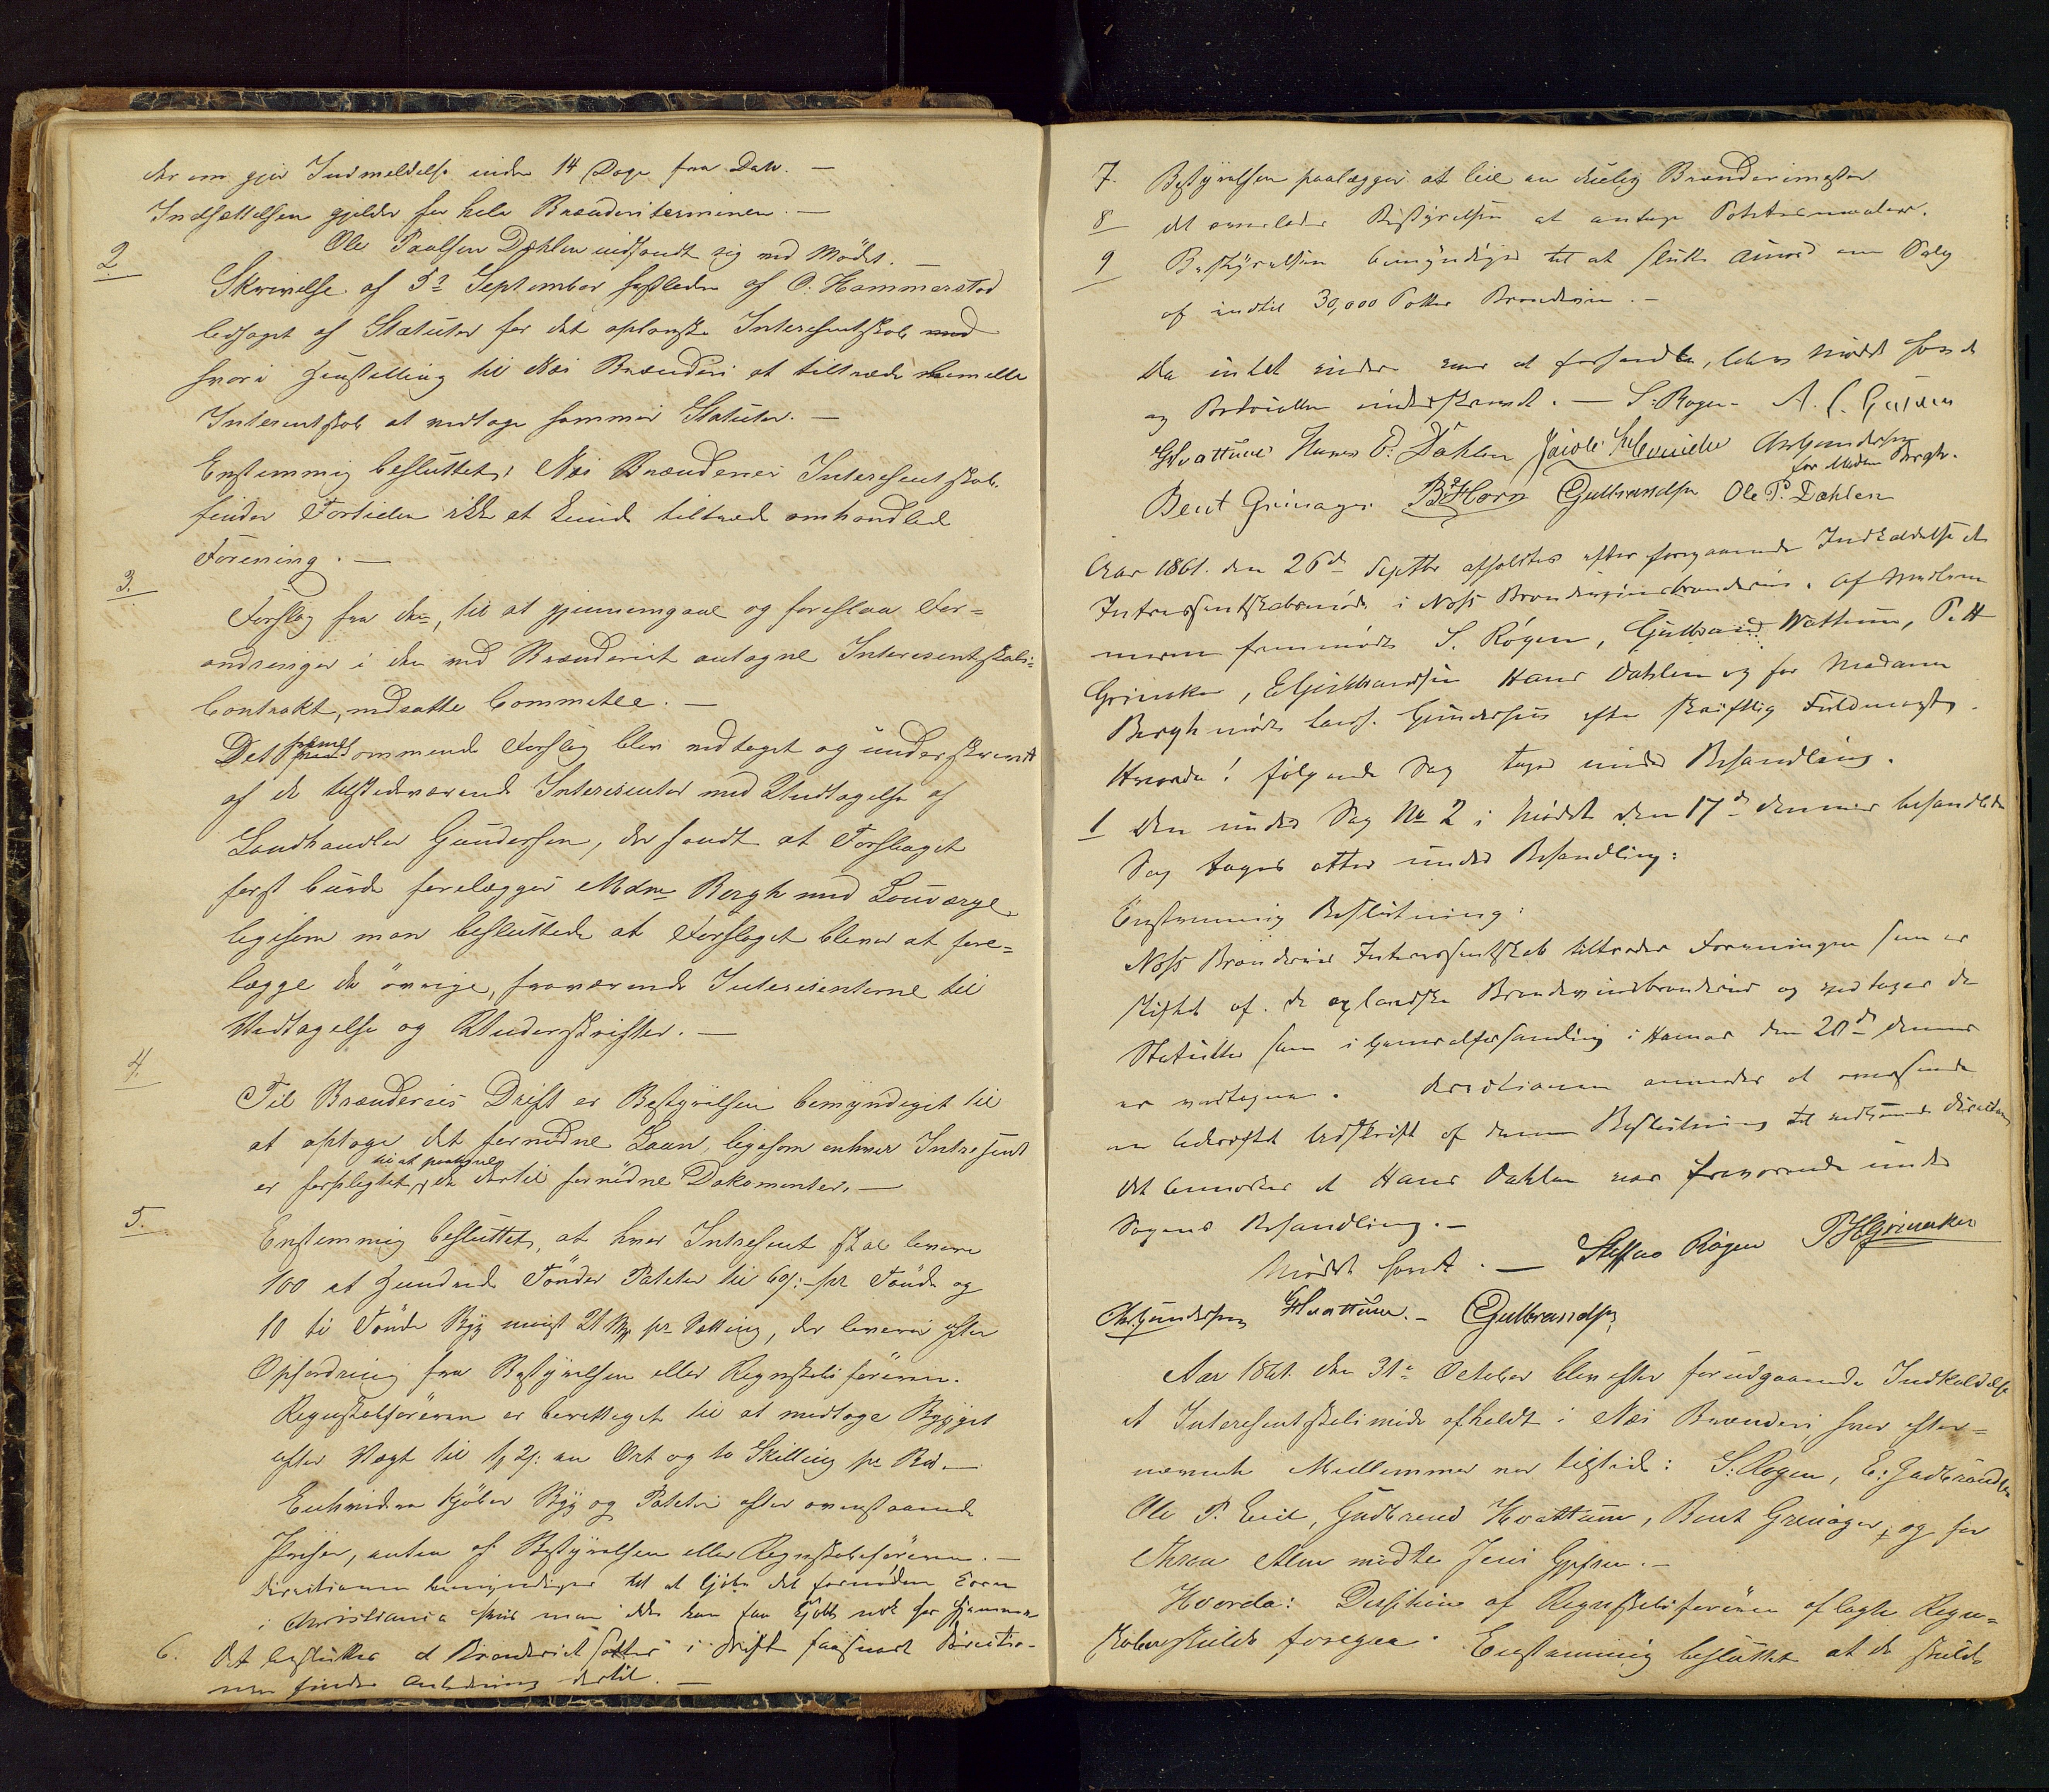 der om gjør Indmeldelse inden 14 Dage fra Dato. —
Indsættelsen gjelder for hele Brænderiterminen. —
Ole Paulsen Dæhlen indfandt sig ved Mødet. —
2
Skrivelse af 5te September sidstleden af O. Hammerstad
ledsaget af Statuter for det oplandske Interesentskab med
hvori Henstilling til Næs Brænderi at tiltræde bemelte
Interesentskab at vedtage sammes Statuter. —
Enstemmig besluttet; Næs Brænderies Interesentskab
finder Fortiden ikke at kunde tiltræde omhandlede
Forening. —
3.
Forslag fra den, til at gjennemgaae og foreslaa For=
andringer i den ved Brænderiet antagne Interesentskabs=
Contrakt, nedsatte Committee. —
Det fremkommende Forslag blev vedtaget og underskrevet
af de tilstedeværende Interesenter med Undtagelse af
Landhandler Gundersen, der fandt at Forslaget
først burde forelægges Mdm Bergh med Lauværge
ligesom man besluttede at Forslaget bliver at fore=
lægge de øvrige, fraværende Interesenterne til
Vedtagelse og Underskrifter. —
4.
Til Brænderiets Drift er Bestyrelsen bemyndiget til
at optage det fornødne Laan, ligesom enhver Intresent
er forpligtet til at paategne de dertil fornødne Dokumenter. —
5.
Enstemmig besluttet, at hver Intresent skal levere
100 et Hundrede Tønder Poteter til 60 s: pr Tønde og
10 ti Tønder Byg pr Sætting, der leveres efter
Opfordring fra Bestyrelsen eller Regnskabsføreren.
Regnskabsføreren er berettiget til at modtage Bygget
efter Vægt til en Ort og to Skilling pr Bd. —
Enhvidere kjøbes Byg og Poteter efter ovenstaaende
Priser, enten af Bestyrelsen eller Regnskabsføreren. —
Directionen bemyndiges til at kjøbe det fornødne Korn
i Christiania hvis man ikke kan faa kjøbt nok her hjemme
6. Det besluttes at Brænderiet sættes i Drift saasnart Directio-
nen finder Anledning dertil. —
7. Bestyrelsen paalægges at leie en duelig Brænderimester
8 det overlades Bestyrelsen at antage Potetesmaaler.
9 Bestyrelsen bemyndiges til at slutte Accord om Salg
af indtil 30,000 Potter Brændeviin. —
Da intet videre var at forhandle, blev Mødet hævet
og Protocollen underskrevet. — S. Røgen A. L.
GHvattum Hans O. Dæhlen Jacob ChrGundersen
for Madam Bergh.
Bent Grinager. B. Horn EGulbrandsen Ole P. Dæhlen
Aar 1861. den 26de Septbr afholdtes efter foregaaende Indkaldelse et
Intressentskabsmøde i Næss Brændevinsbrænderie. Af Medlem
merne fremmødte S. Røgen, Gulbrand Wattum, P. H
Grinaker, E Gulbrandsen Hans Dæhlen og for Madame
Bergh mødte Gundersen efter skriftlig Fuldmagt.
Hvorda! følgende Sag toges under Behandling.
1 Den under Sag No 2 i Mødet den 17de dennes behandlede
Sag toges atter under Behandling:
Enstemmig Beslutning:
Næss Brænderies Intressentskab tiltræder Foreningen som er
stiftet af de oplandske Brændeviinsbrænderier og vedtager de
Statutter som i Generalforsamling i Hamar den 20de dennes
er vedtagne. Directionen anmodes at oversende
en bekræftet Udskrift af denne Beslutning til vedkommende Direction
Det bemærkes at Hans Dæhlen var fraværende under
Sagens Behandling. —
Mødet hævet. — Steffen Røgen PHGrinaker
ChrGundersen GHvattum. — EGulbrandsen
Aar 1861. den 31te October blev efter forudgaaende Indkaldelse
et Interesentskabsmøde afholdt i Næs Brænderi, hvor efter=
nævnte Medlemmer var tilstede: S. Røgen, E: Gudbrandsen
Ole P. Lie, Gudbrand Hvattum, Bent Grinager, og for
Thron Alm mødte Jens Gjefsen. —
Hvorda: Desition af Regnskabsføreren aflagte Regn=
skab skulde foregaa. Enstemmig besluttet at de skulde